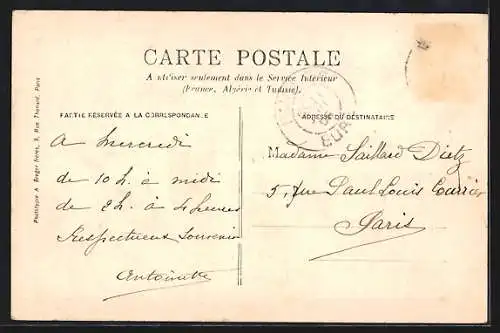 CARTE POSTALE
A utiliser seulement dans le Service Intérieur
(France, Algérie et Tunisie).
PARTIE RÉSERVÉE A LA CORRESPONDANCE
A Mercredi
de 10 h. à midi
de 2 h. à 4 heures
Respectueux Souvenir
Antoinette
ADRESSE DU DESTINATAIRE
Madame Saillard Dietz
5, rue Paul Louis Courrier
Paris
EUR
Phototypie A. Berger frères, 9, Rue Thénard, Paris